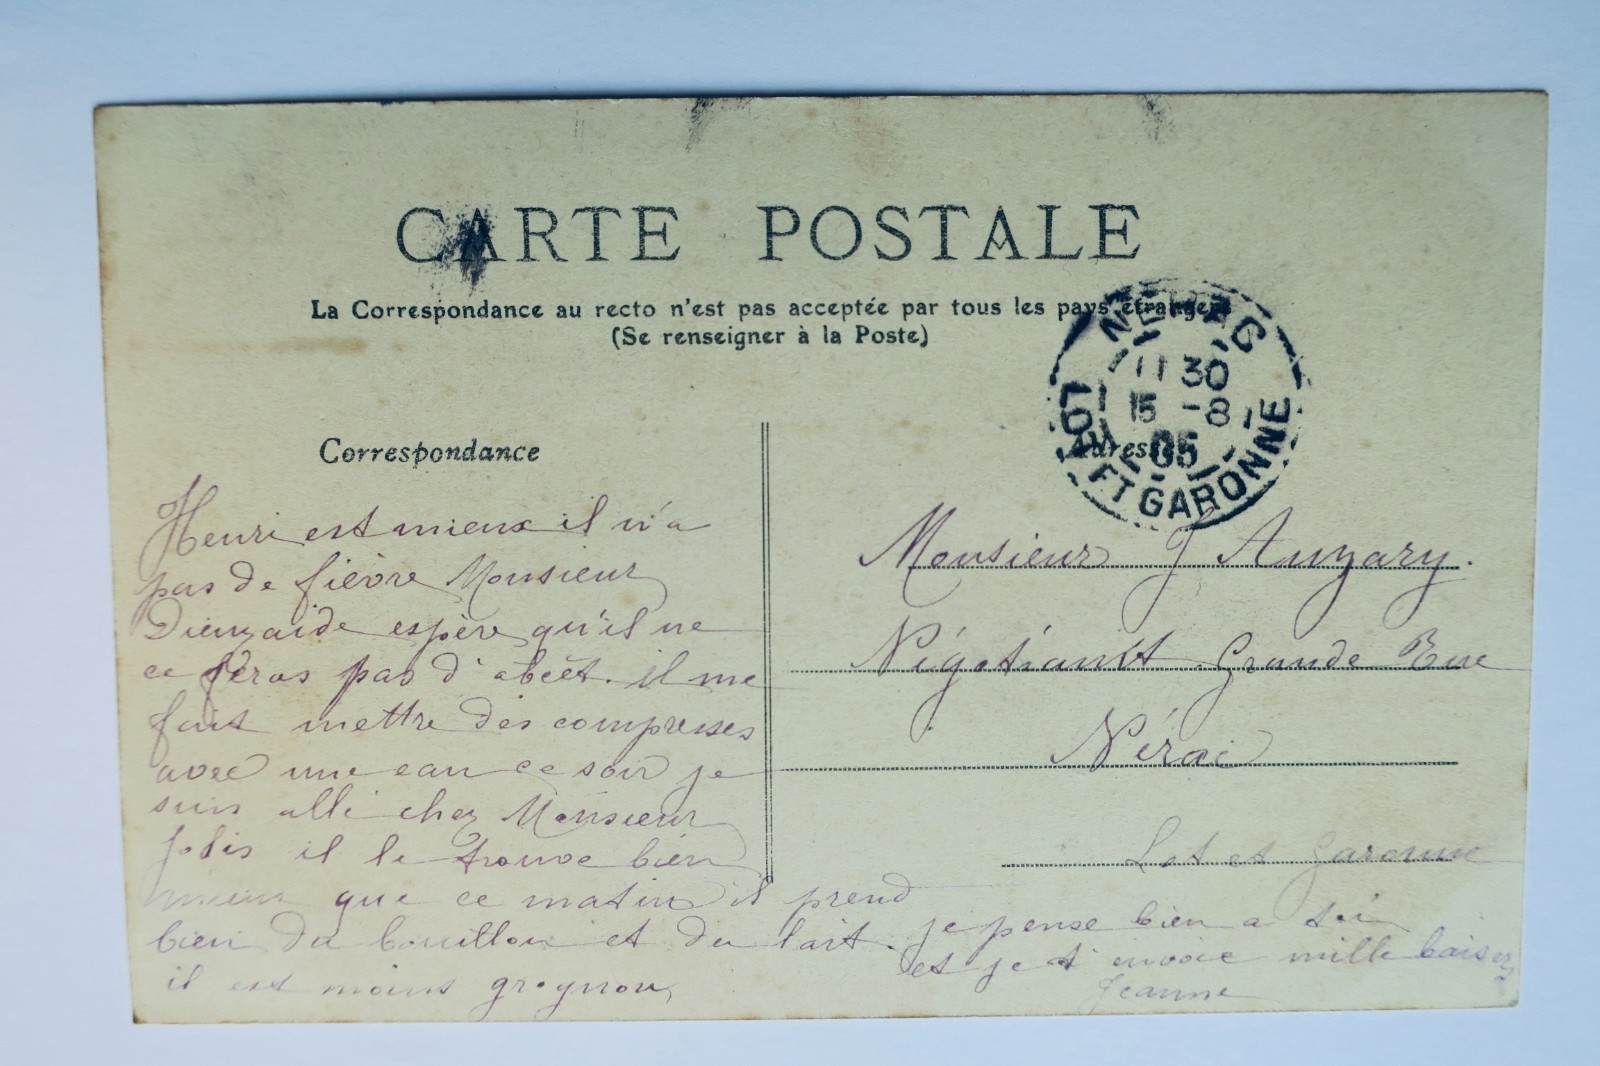 CARTE POSTALE
La Correspondance au recto n'est pas acceptée par tous les pays étrangers
(Se renseigner à la Poste)
NERAC
11 30
15 -8
05
LOT ET GARONNE
Correspondance
Adresse
Henri est mieux il n'a
pas de fièvre Monsieur
espère qu'il ne
ce feras pas d'abcét. il me
fait mettre des compresses
avec une eau ce soir je
suis allé chez Monsieur
il le trouve bien
mieux que ce matin il prend
bien du bouillon et du lait.
il est moins grognon
je pense bien a toi
et je t'envoie mille baisers
Jeanne
Monsieur J Auzary.
Négotiant Grande Rue
Nérac
Lot et Garonne